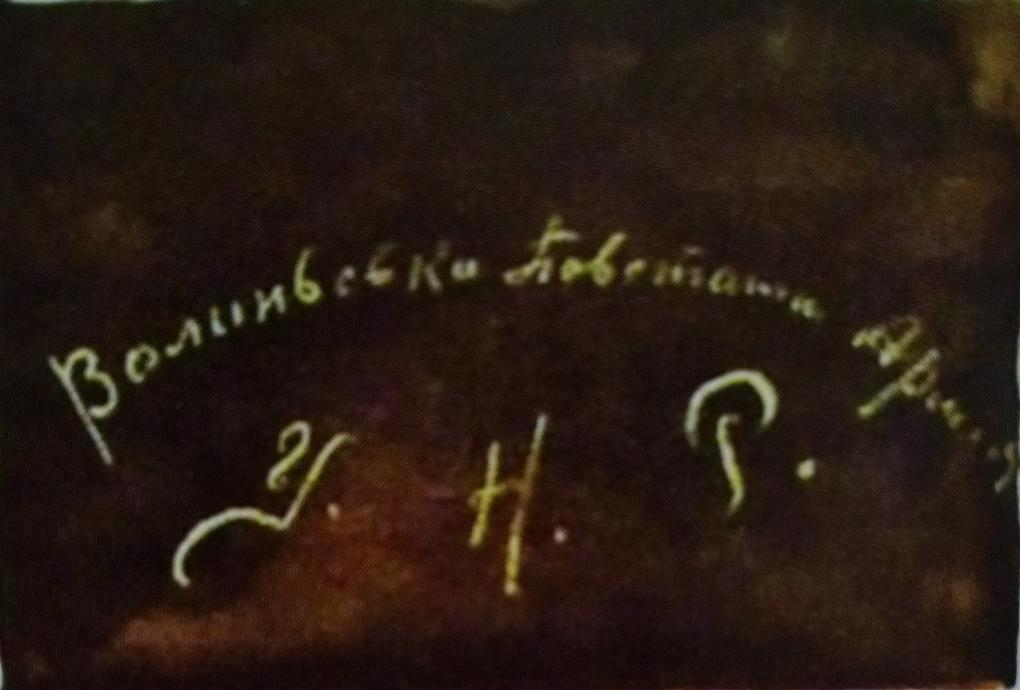 Волиньська Повстанча Армия
У. Н. Р.